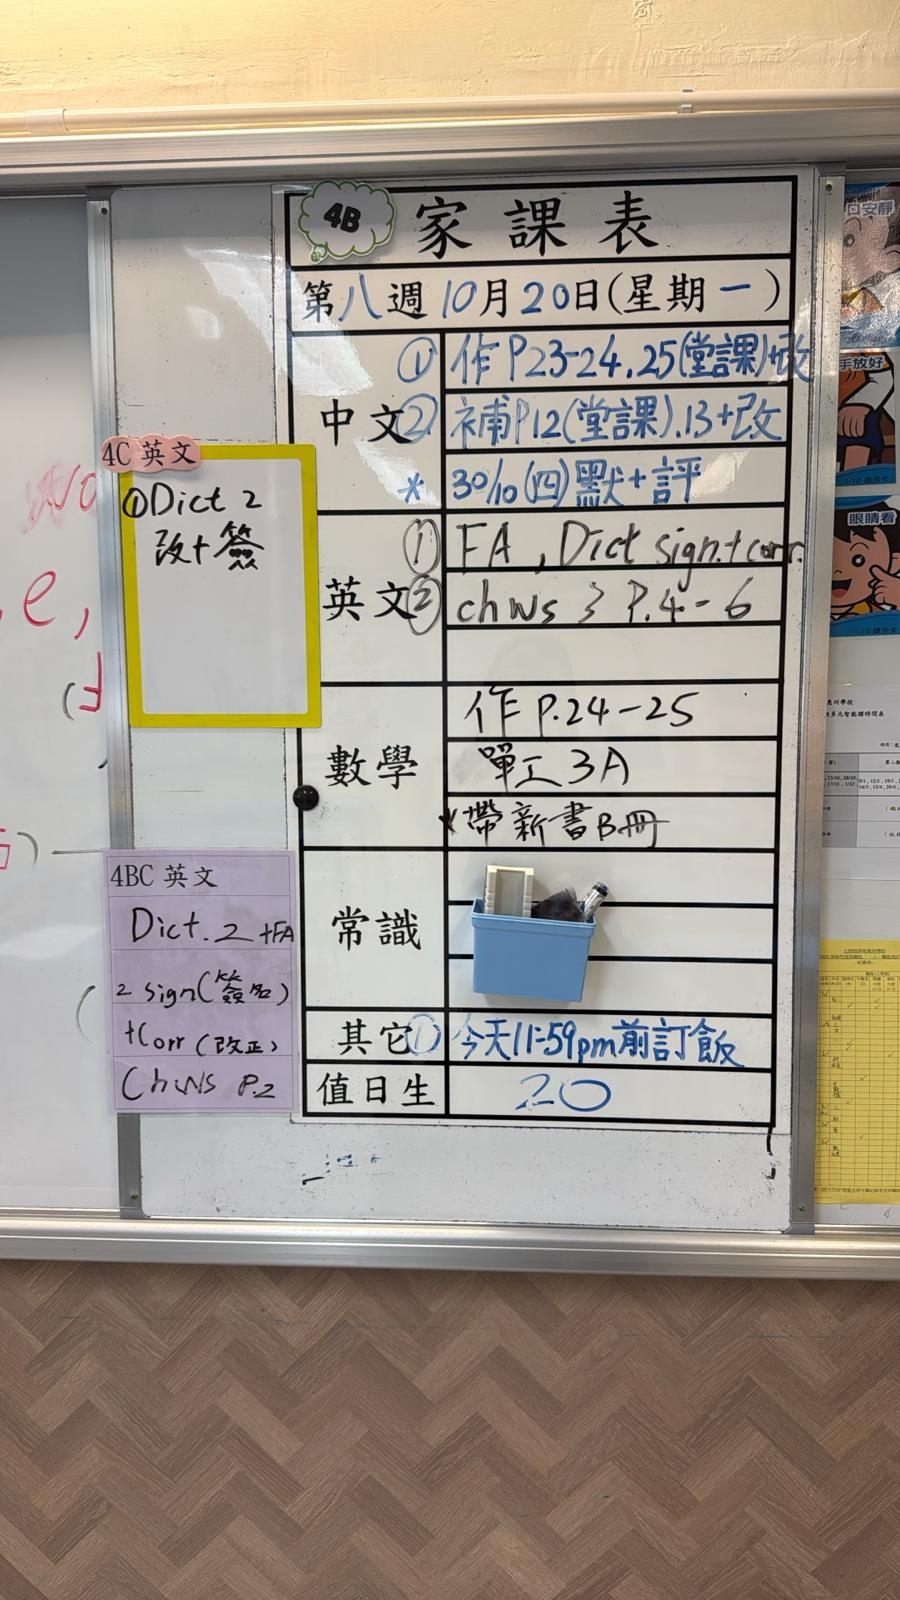 4B
家課表
第八週10月20日(星期一)
中文
① 作P23-24.25(堂課)+改
② 補P12(堂課).13+改
* 30/10(四)默+評
英文
① FA, Dict sign.+corr.
② chws 3 P.4-6
數學
作P.24-25
單工3A
*帶新書B冊
常識
其它
① 今天11:59pm前訂飯
值日生
20
4C英文
①Dict 2
改+簽
4BC英文
Dict. 2 +FA
2 sign(簽名)
+Corr(改正)
ChWS P.2
安靜
手放好
眼睛看